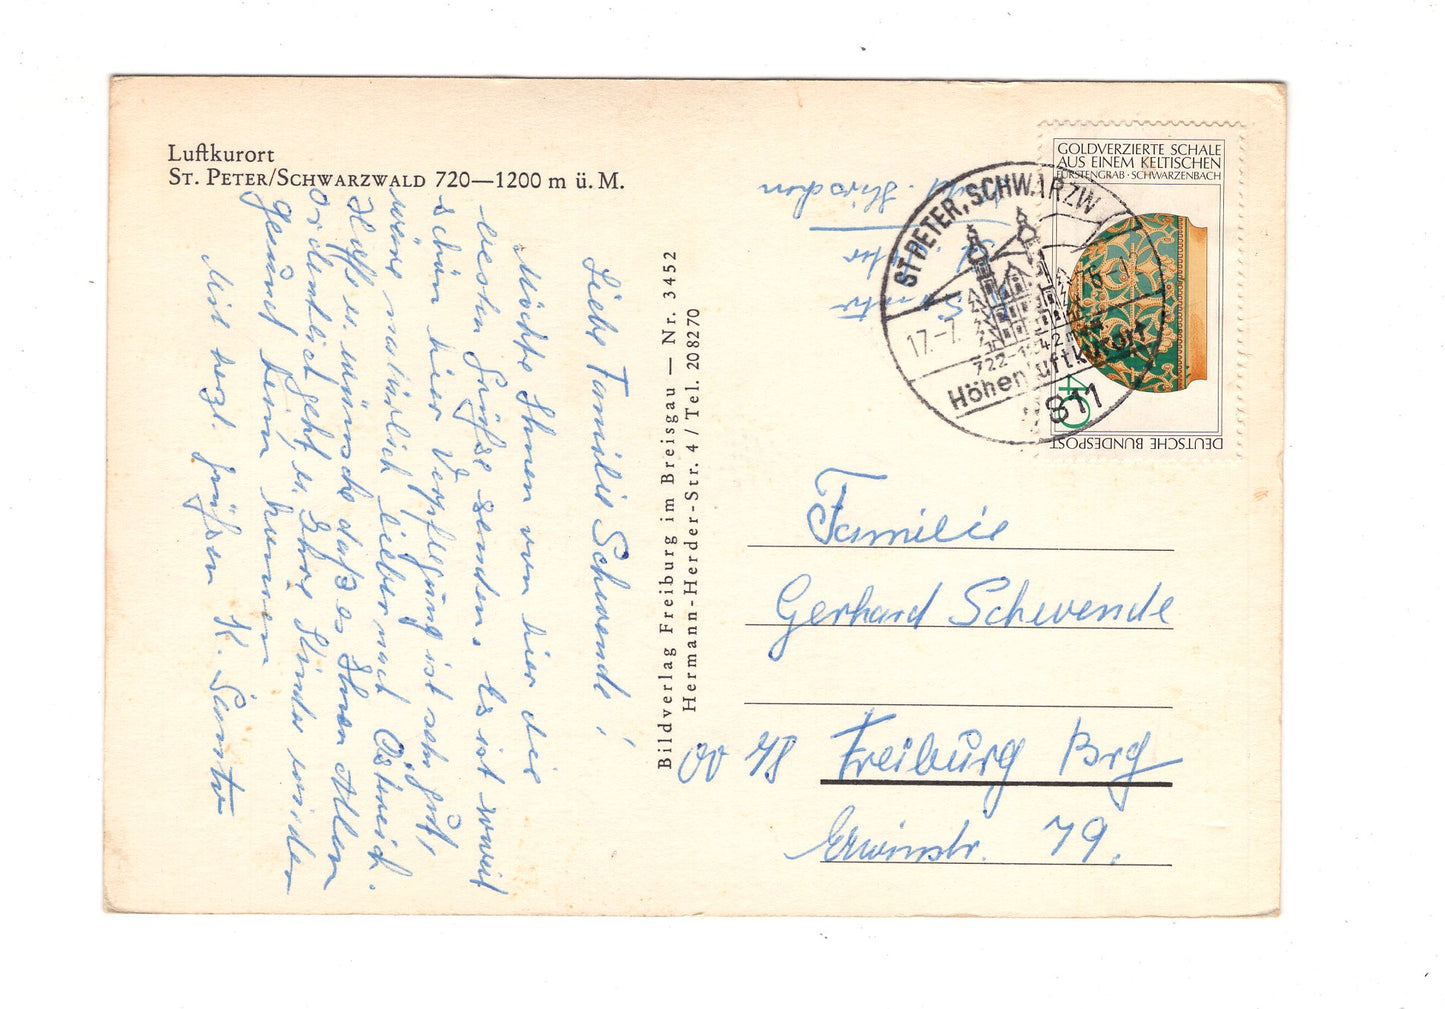 Luftkurort
St. Peter/Schwarzwald 720—1200 m ü. M.
Liebe Familie Schwende!
Möchte Ihnen von hier die
besten Grüße senden. Es ist soweit
schön hier Verpflegung ist sehr gut,
wäre natürlich lieber nach Östreich.
Hoffe u. wünsche daß es Ihnen Allen
ordentlich geht, u. Ihre Kinder wieder
Gesund sein kennen
Mit herzl. grüßen K.
Bildverlag Freiburg im Breisgau — Nr. 3452
Hermann-Herder-Str. 4 / Tel. 20 82 70
Hirschen
GOLDVERZIERTE SCHALE
AUS EINEM KELTISCHEN
FÜRSTENGRAB · SCHWARZENBACH
40
DEUTSCHE BUNDESPOST
ST PETER, SCHWARZW
17.-7.
Höhenluftkurort
7811
Familie
Gerhard Schwende
78 Freiburg Brg
Erwinstr. 79.